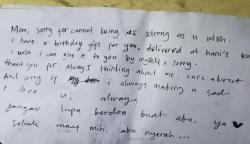 Mom, sorry for cannot being as strong as u wish.
i have a birthday gift for you, delivered at hani's
i wish i can give it to you by myself, sorry.
thank you for always thinking about me, care about
And sorry if i always making u sad
i love u, always
jangan lupa berdoa buat aku, ya ♥
sekali maaf mih. aku nyerah...